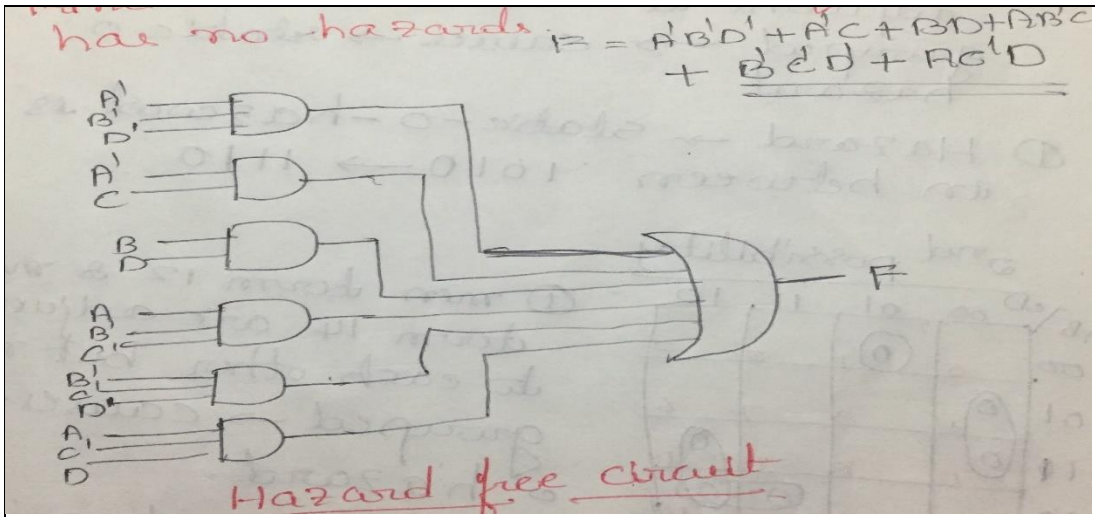 has no hazards F = A'B'D' + A'C + BD + AB'C'
+ B'C'D' + AC'D
A'
B'
D'
A'
C
B
D
A
B'
C'
B'
C'
D'
A
C'
D
F
Hazard free circuit